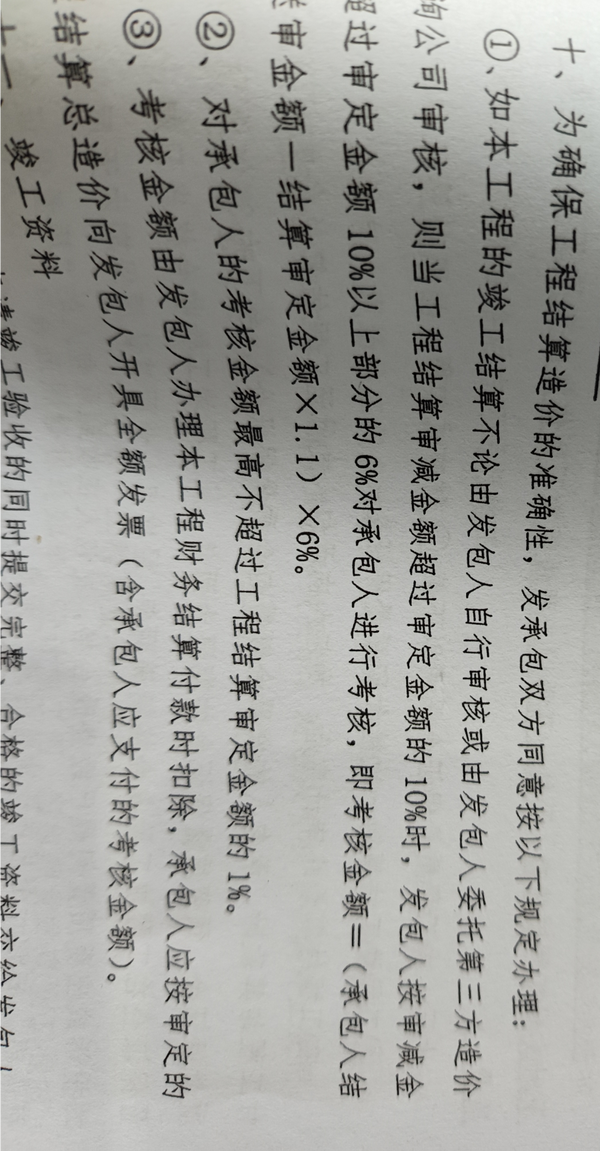 十、为确保工程结算造价的准确性，发承包双方同意按以下规定办理：
①、如本工程的竣工结算不论由发包人自行审核或由发包人委托第三方造价
询公司审核，则当工程结算审减金额超过审定金额的10%时，发包人按审减金
超过审定金额10%以上部分的6%对承包人进行考核，即考核金额＝（承包人结
送审金额－结算审定金额×1.1）×6%。
②、对承包人的考核金额最高不超过工程结算审定金额的1%。
③、考核金额由发包人办理本工程财务结算付款时扣除，承包人应按审定的
结算总造价向发包人开具全额发票（含承包人应支付的考核金额）。
十一、竣工资料
请竣工验收的同时提交完整、合格的竣工资料交给发包人